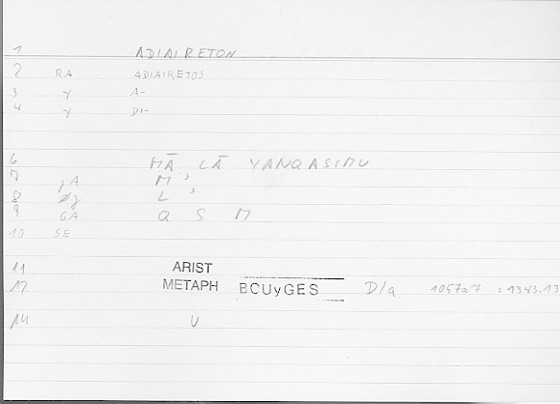 1 ADIAIRETON
2 RA ADIAIRETOS
3 y A-
4 y DI-
6 MĀ LĀ YANQASIMU
7 yA M '
8 L '
9 GA Q S M
10 SE
11 ARIST
12 METAPH BOUyGES D/a 1057a7 = 1343.13
14 U